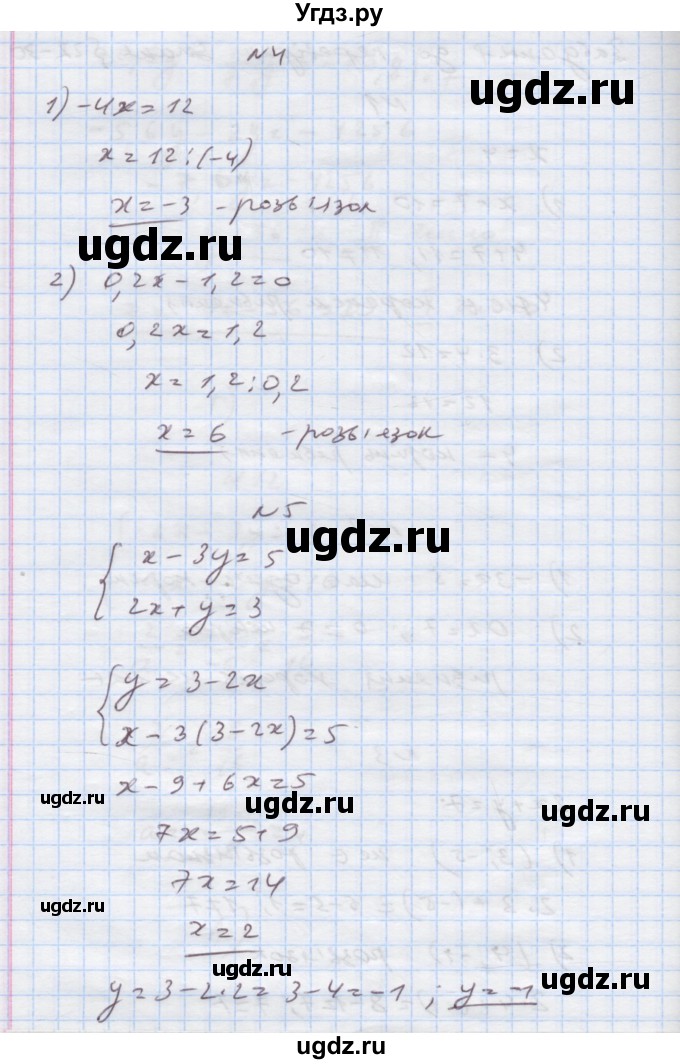 Угдз.ру
N4
ugdz.ru
1) -4x = 12
x = 12 : (-4)
x = -3 - розв'язок
ugdz.ru
2) 0,2x - 1,2 = 0
0,2x = 1,2
x = 1,2 : 0,2
x = 6 - розв'язок
N5
ugdz.ru
{ x - 3y = 5
2x + y = 3
{ y = 3 - 2x
x - 3(3 - 2x) = 5
x - 9 + 6x = 5
ugdz.ru
ugdz.ru
ugdz.ru
7x = 5 + 9
7x = 14
ugdz.ru
ugdz.ru
x = 2
ugdz.ru
ugdz.ru
y = 3 - 2·2 = 3 - 4 = -1 ; y = -1